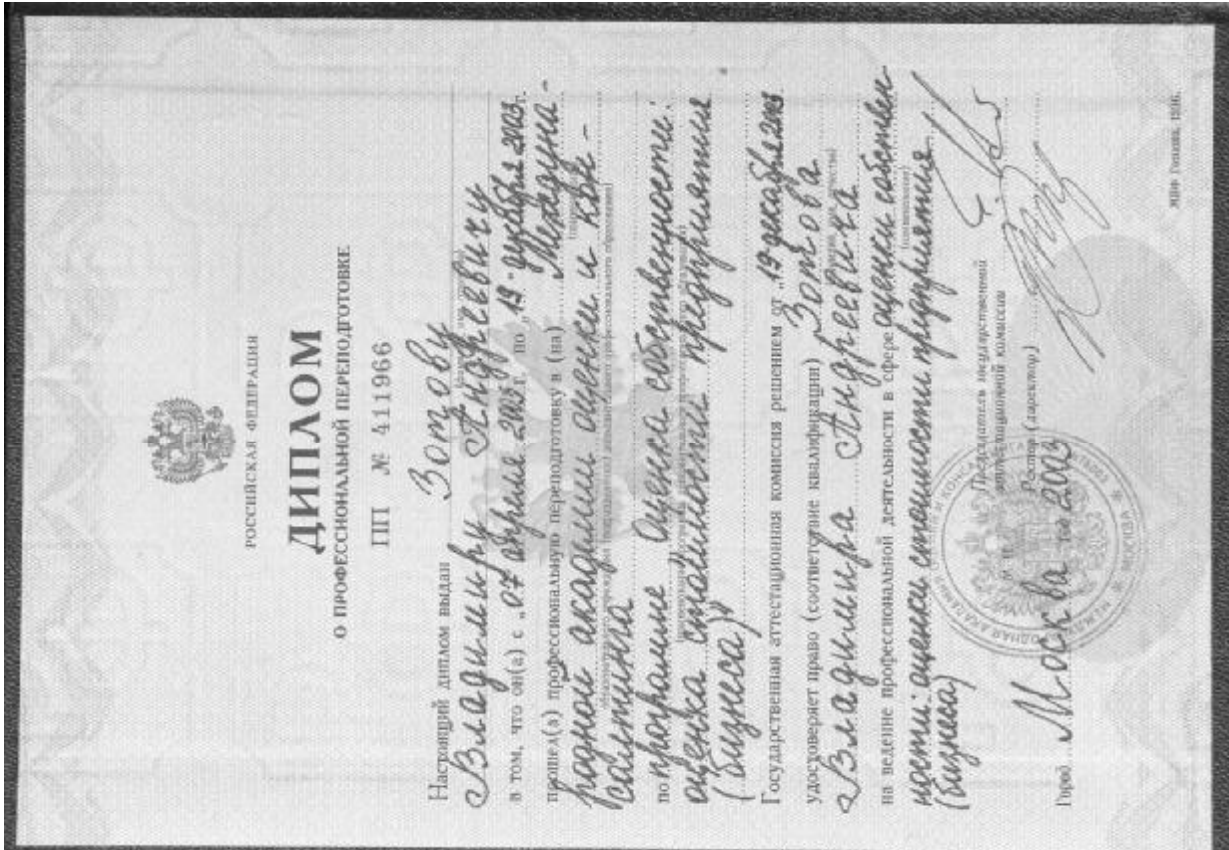 РОССИЙСКАЯ ФЕДЕРАЦИЯ
ДИПЛОМ
О ПРОФЕССИОНАЛЬНОЙ ПЕРЕПОДГОТОВКЕ
ПП № 411966
Настоящий диплом выдан Зотову
Владимиру Андреевичу
в том, что он(а) с „07 апреля 2003г. по „19" декабря 2003г.
прошел(а) профессиональную переподготовку в (на) Междуна-
родной академии оценки и кон-
салтинга
по программе Оценка собственности:
оценка стоимости предприятия
(бизнеса)
Государственная аттестационная комиссия решением от „19 декабря 2003
удостоверяет право (соответствие квалификации) Зотова
Владимира Андреевича
на ведение профессиональной деятельности в сфере оценки собствен-
ности: оценки стоимости предприятия
(бизнеса)
Председатель государственной
аттестационной комиссии
Ректор (директор)
Город Москва 2003